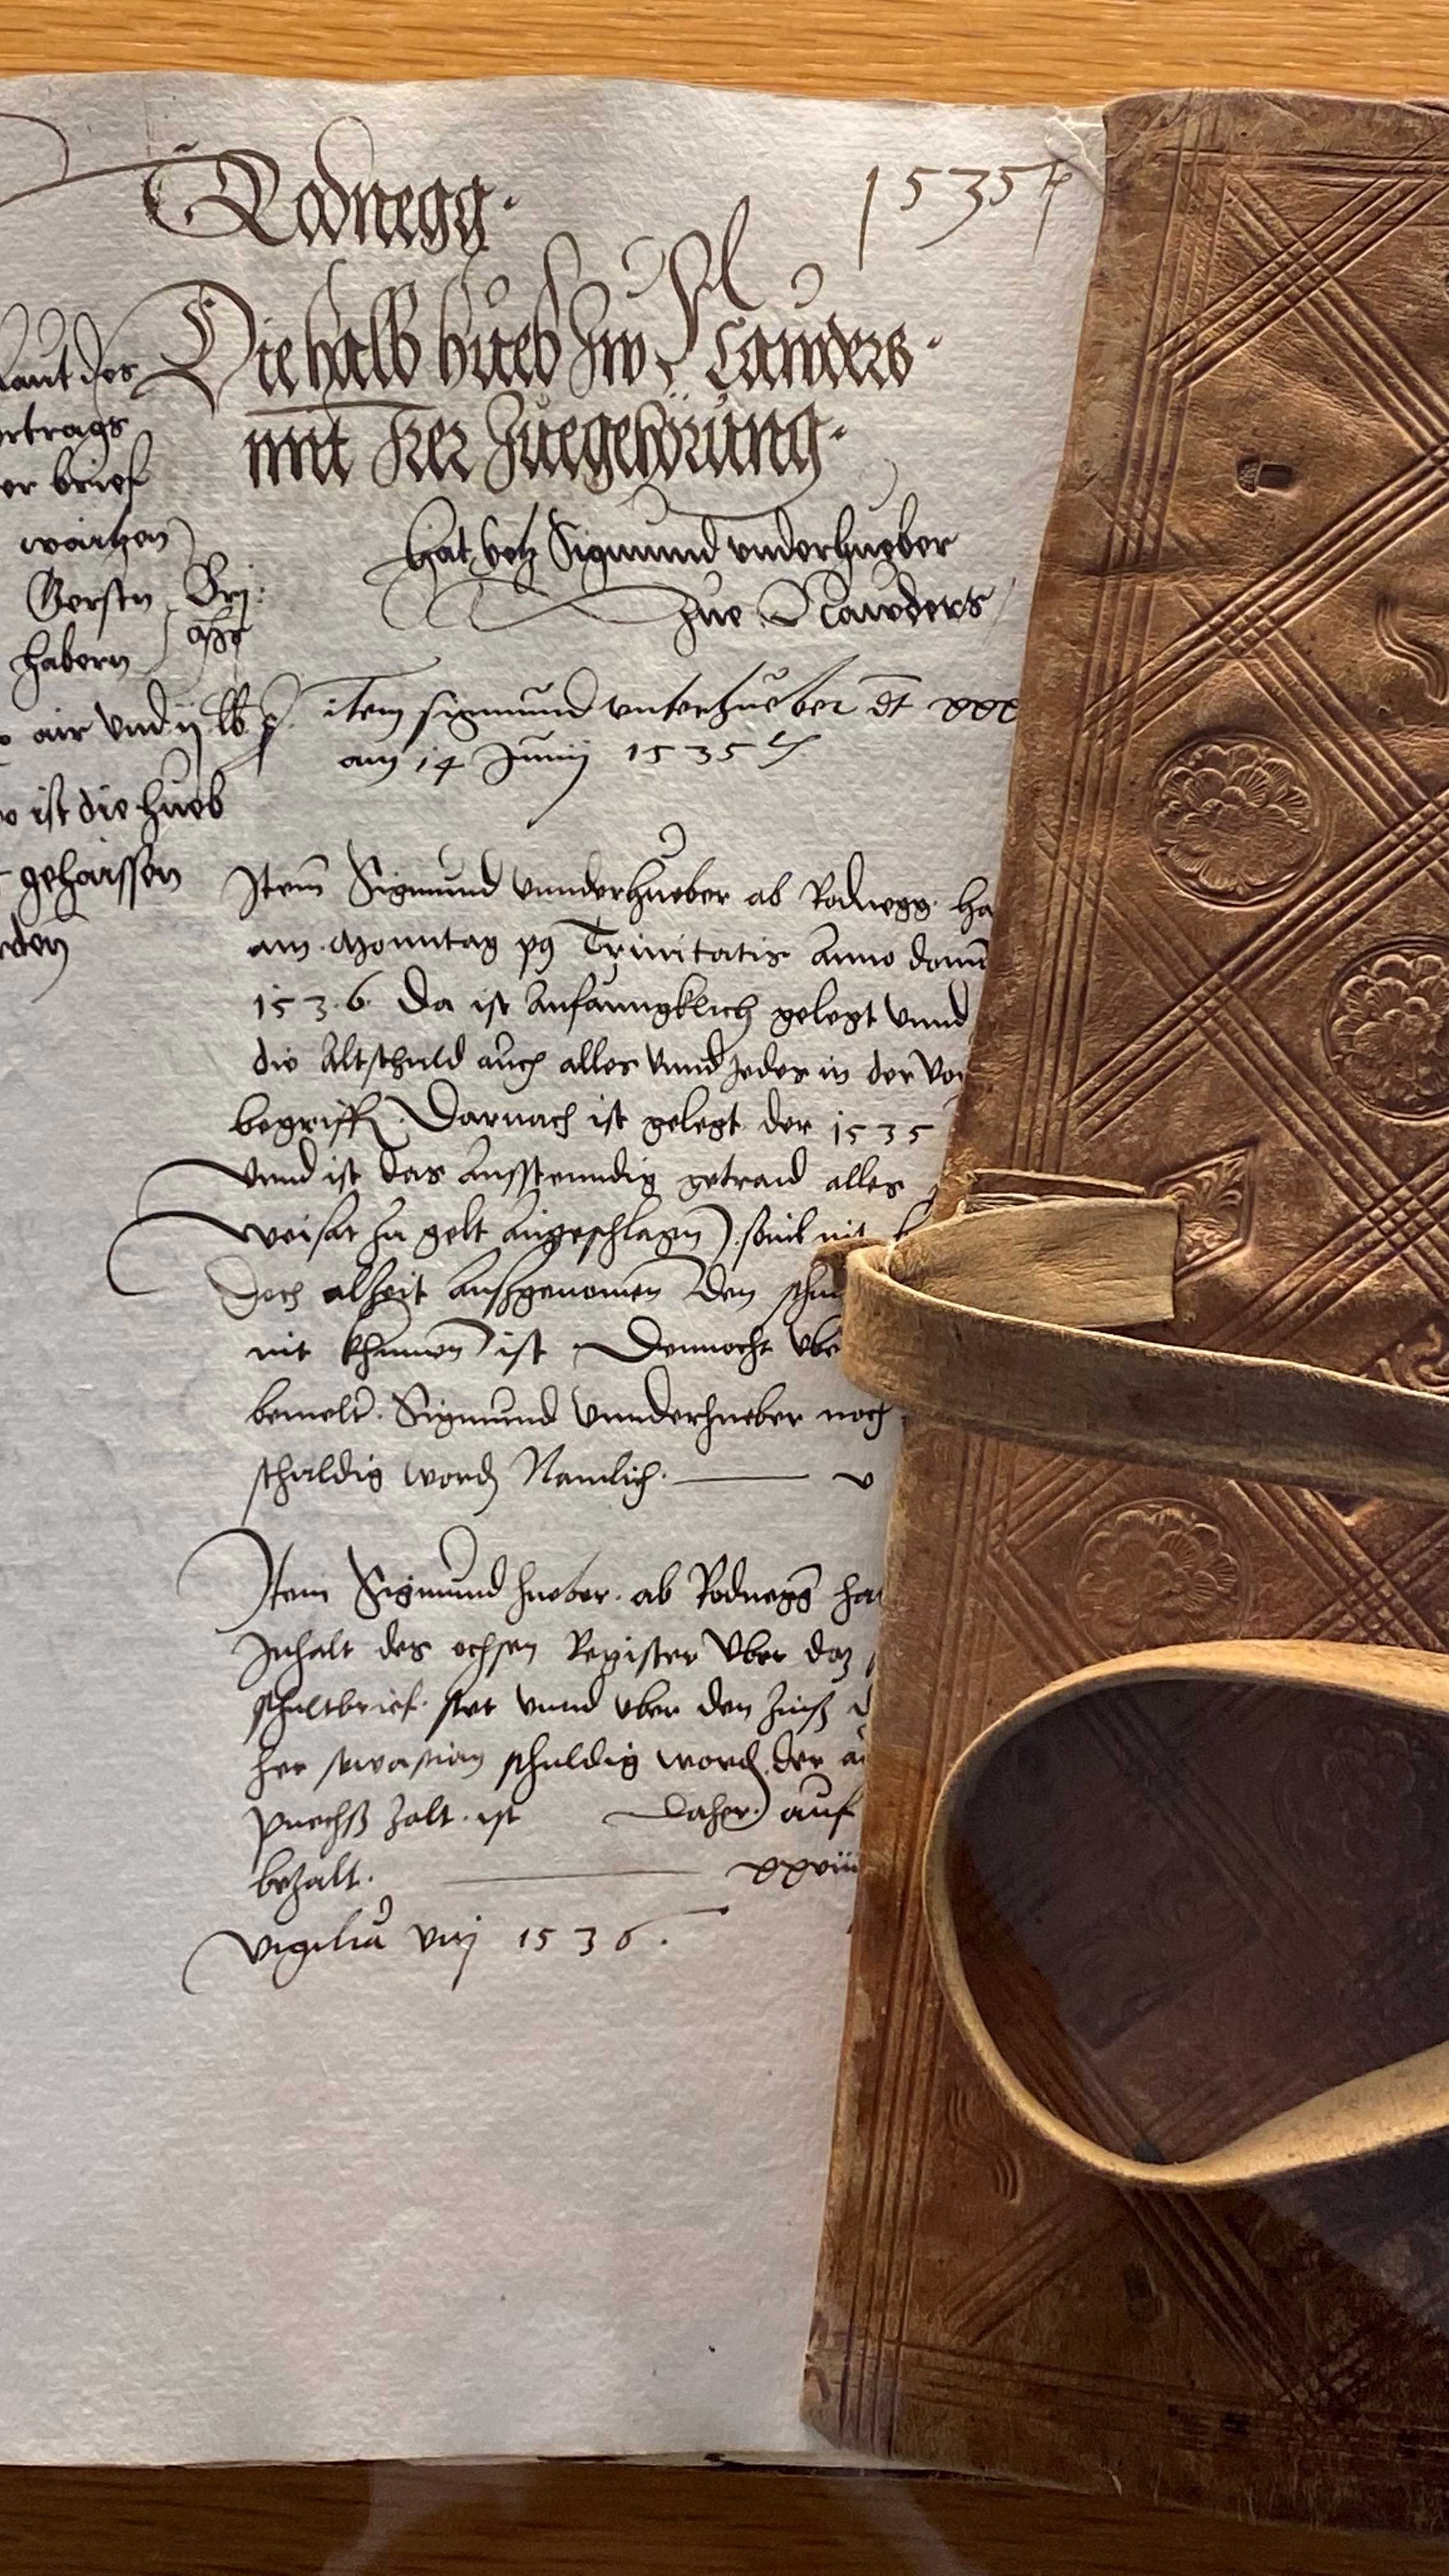 Rodnegg.
1535
Die halb hueb Im Nauders.
mit Irer Zuegehörung.
hat yetz Sigmund vnderhueber
zue Nawders
laut des
ertrags
er brief
waitzen
Gersten
habern
air vnd ij lb
ist die hueb
gehaissen
rden
item sigmund vnterhueber dt xxx
am 14 Junij 1535
Item Sigmund Vnnderhueber ab Rodnegg ha
am Monntag p9 Trinitatis Anno domi
1536. Da ist Anfanngklich gelegt Vnnd
die Altschuld auch alles Vnnd Jedes in der Vo
begriffn. Darnach ist gelegt der 1535
Vnnd ist das Ausstenndig getraid alles
weisat zu gelt Angeschlagn
Doch alzeit Ausgenomen Den
nit khumen ist Dennocht vbe
bemelt. Sigmund Vnnderhueber noch
schuldig word Namlich.
Item Sigmund hueber ab Rodnegg ha
Inhalt des ochsen Register Vber daz
schultbrief stet Vnnd vber den Zinß
her sewastian schuldig word. der
puechß zalt ist Daher auf
bezalt. xxviii
Vigilia 1536.